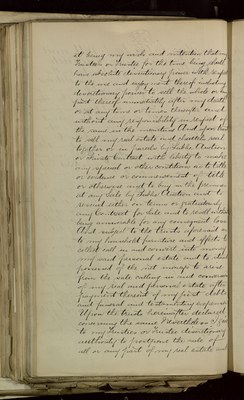 it being my wish and intention that my
Trustees or Trustee for the time being shall
have absolute discretionary power with respect
to the use and enjoyment thereof including
discretionary power to sell the whole or any
part thereof immediately after my death
or at any time or times thereafter and
without any responsibility in respect of
the same in the execution And upon trust
to sell my real estate and chattels real
together or in parcels by Public Auction
or Private Contract with liberty to make
any special or other conditions as to title
or evidence or commencement of title
or otherwise and to buy in the premises
at any Sale by Public Auction and to
rescind either on terms or gratuitously
any Contract for Sale and to resell without
being answerable for any consequent loss
And subject to the trusts aforesaid
to my household furniture and effects to
collect call in and convert into money
my said personal estate and to stand
possessed of the net moneys to arise
from the sale calling in and conversion
of my real and personal estate after
payment thereout of my just debts
and funeral and testamentary expenses
Upon the trusts hereinafter declared
concerning the same
to my Trustees or Trustee discretionary
authority to postpone the sale of
all or any part of my real estate and